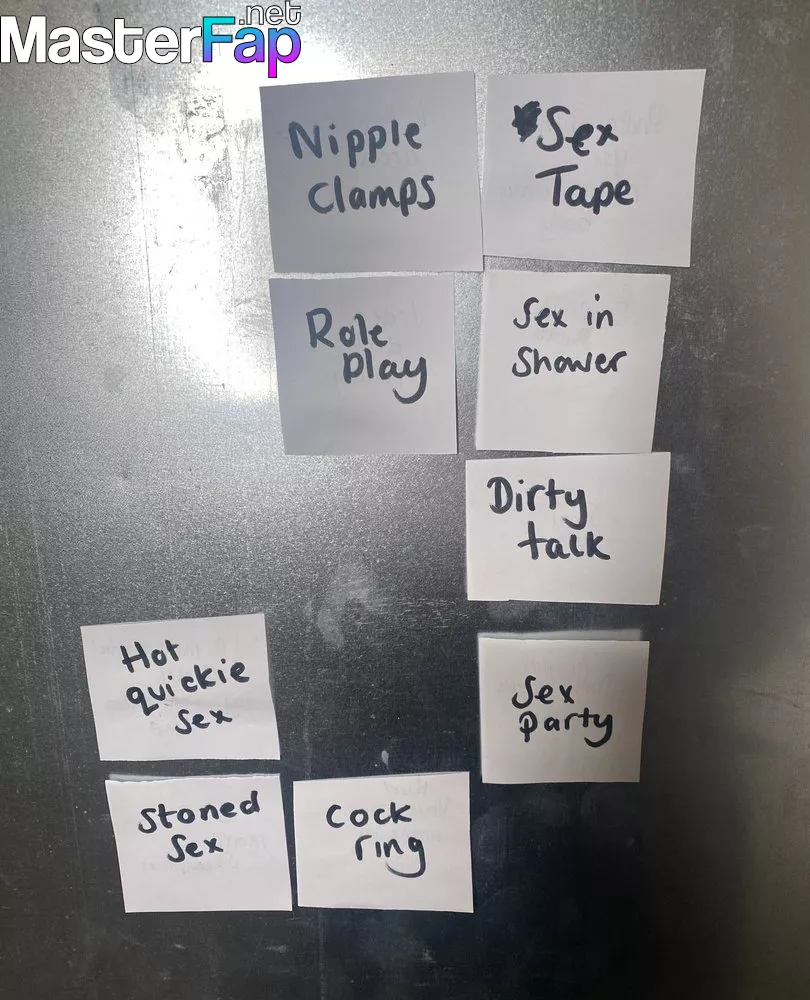 .net
MasterFap
Nipple
clamps
Sex
Tape
Role
play
Sex in
Shower
Dirty
talk
Hot
quickie
sex
Sex
party
Stoned
Sex
Cock
ring